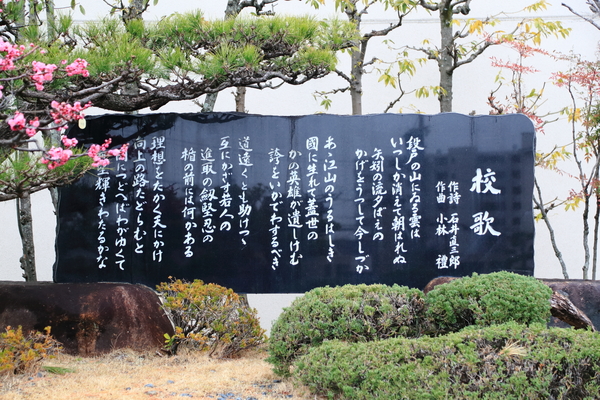 校歌
作詩 石井直三郎
作曲 小林 禮
段戸の山にゐる雲は
いつしか消えて朝はれぬ
矢矧の流夕ばえの
かげをうつして今しづか
あゝ江山のうるはしき
國に生れて蓋世の
かの英雄が遺しけむ
誇をいかでわするべき
道遠くとも助けつゝ
互にかざす若人の
進取の劔堅忍の
楯の前には何かある
理想をたかく天にかけ
向上の路たどらむと
つどへばわがゆくて
輝きわたるかな